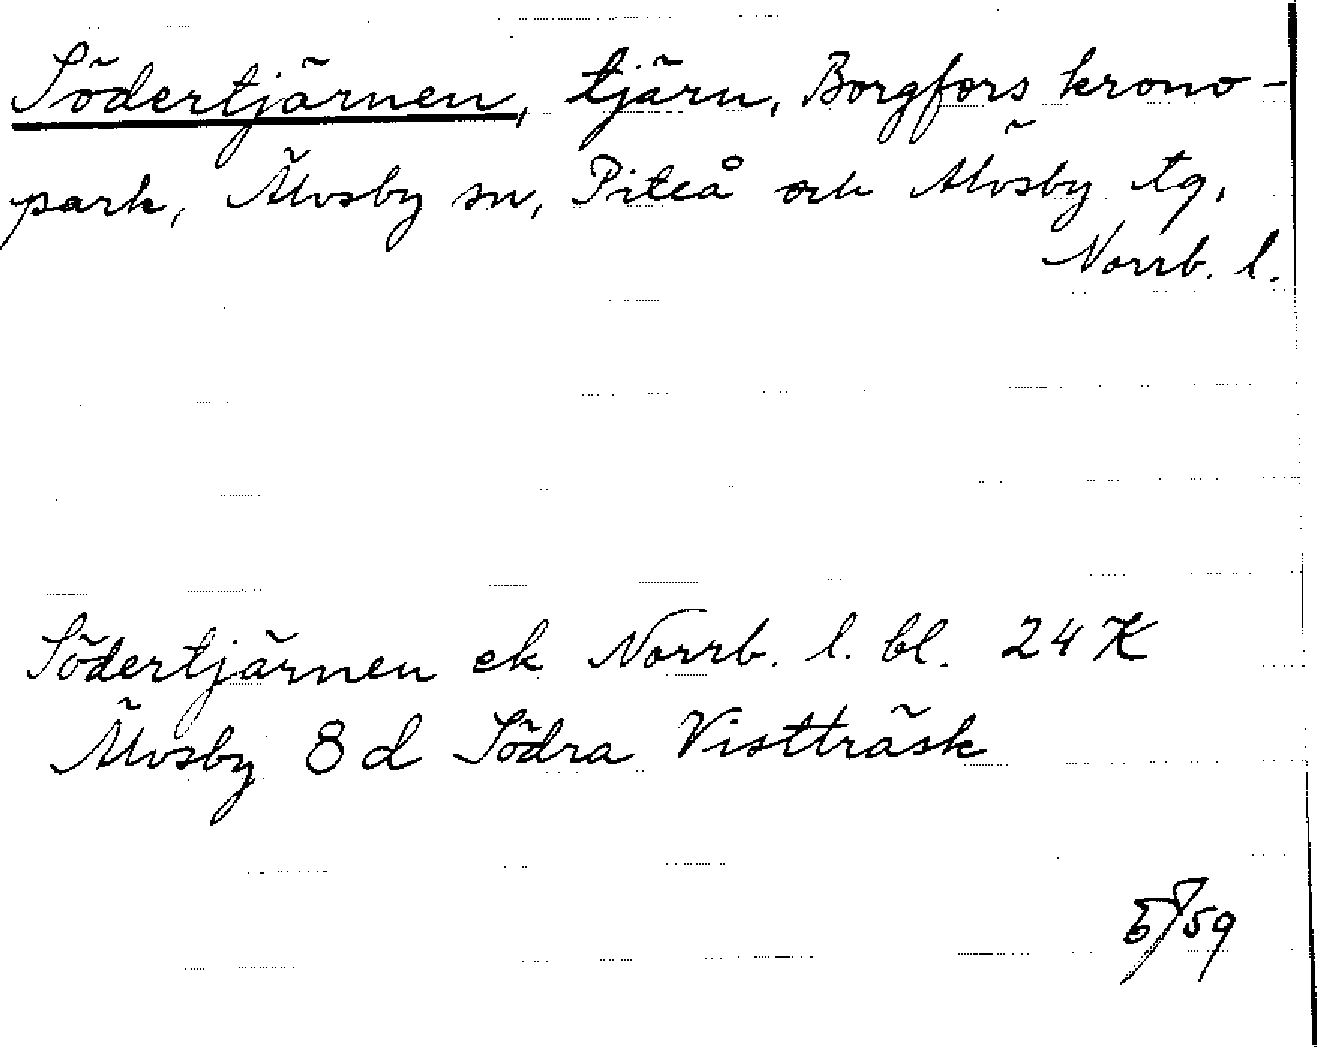 Södertjärnen, tjärn, Borgfors krono-
park, Älvsby sn, Piteå och Älvsby tg,
Norrb. l.
Södertjärnen ek Norrb. l. bl. 24 K
Älvsby 8 d Södra Vistträsk
/59